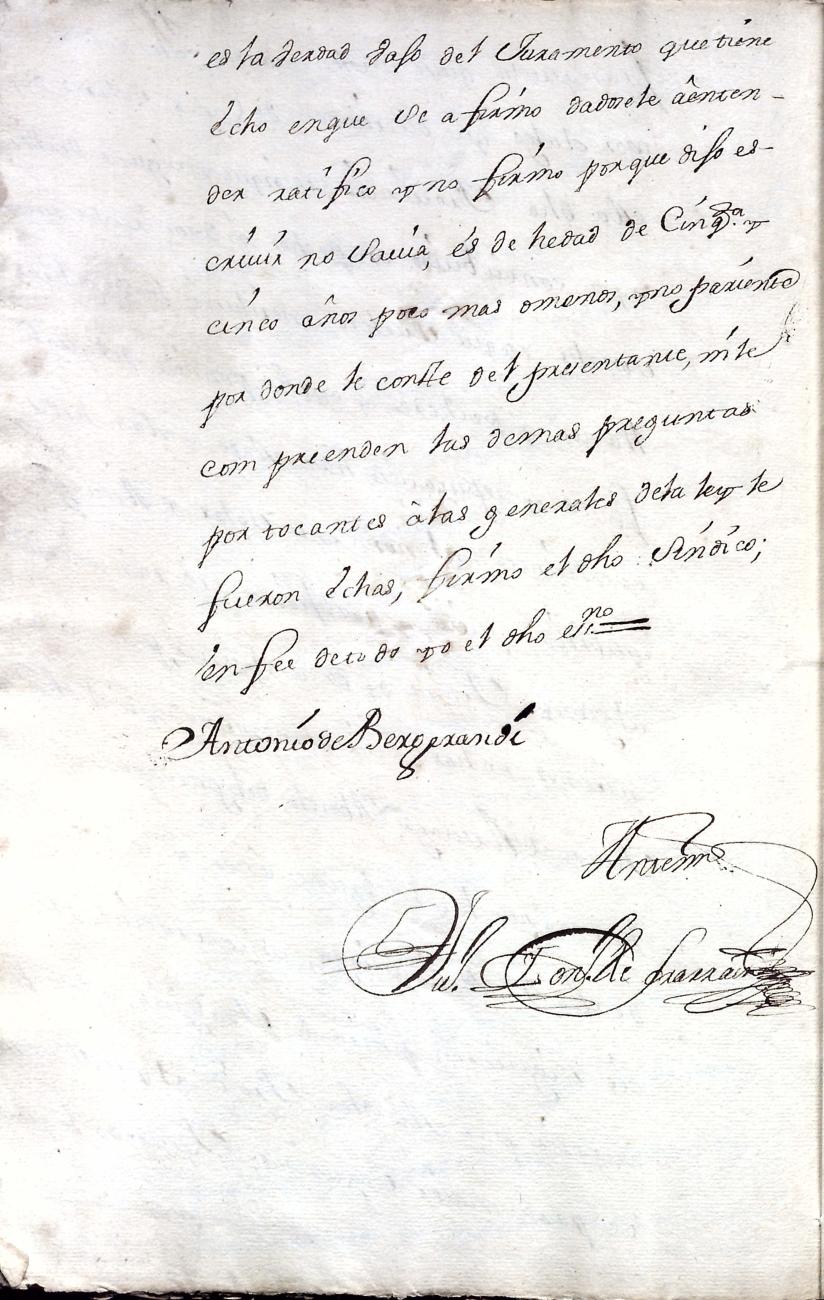 es la verdad vajo del Juramento que tiene
écho en que se afirmo dadosele âenten-
der ratifico y no firmo porque dijo es-
criuir no sauia, és de hedad de Cinq.ta y
cinco años poco mas omenos, y no pariente
por donde le conste del presentante, ni le
comprenden las demas preguntas
por tocantes â las generales dela ley le
fueron échas, firmo el dho Síndico;
en fee detodo yo el dho esn.no =
Antonio de Berroerandi
Antemi